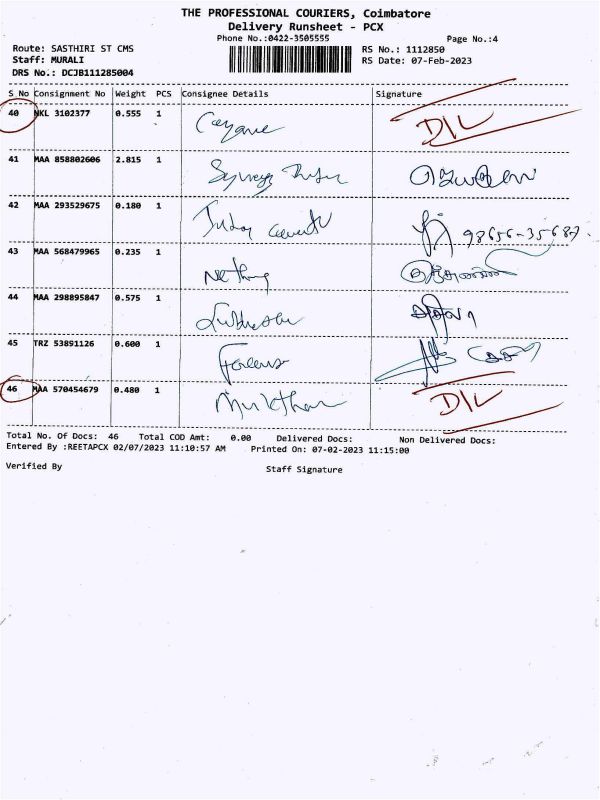 THE PROFESSIONAL COURIERS, Coimbatore
Delivery Runsheet - PCX
Phone No.:0422-3505555
Page No.:4
Route: SASTHIRI ST CMS
RS No.: 1112850
Staff: MURALI
RS Date: 07-Feb-2023
DRS No.: DCJB111285004
S No Consignment No Weight PCS Consignee Details Signature
40 NKL 3102377 0.555 1 D/L
41 MAA 858802606 2.815 1
42 MAA 293529675 0.180 1 98656-35687
43 MAA 568479965 0.235 1
44 MAA 298895847 0.575 1
45 TRZ 53891126 0.600 1
46 MAA 570454679 0.480 1 D/L
Total No. Of Docs: 46 Total COD Amt: 0.00 Delivered Docs: Non Delivered Docs:
Entered By :REETAPCX 02/07/2023 11:10:57 AM Printed On: 07-02-2023 11:15:00
Verified By Staff Signature